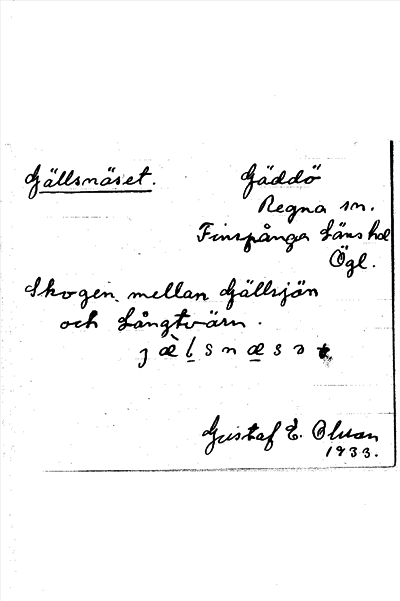 Gällsnäset. Gäddö
Regna sn.
Finspånga Läns hd
Ögl.
Skogen mellan Gällsjön
och Långtvärn.
Gustaf E. Olsson
1933.